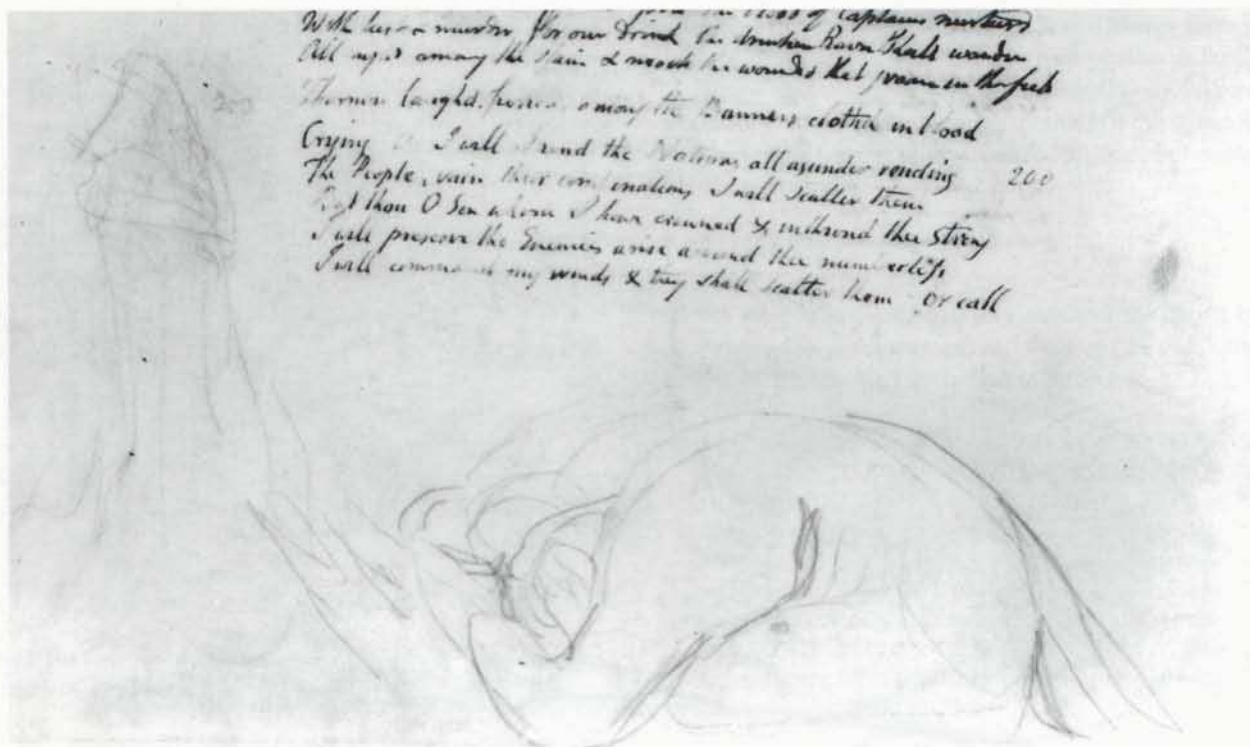 the blood of Captains nurturd
With murder for our Drink the drunken Raven shall wander
All night among the slain & mock the wounded that groan in the field
Tharmas laughd furious among the Banners clothd in blood
Crying As I will I rend the Nations all asunder rending 200
The People, vain their combinations I will scatter them
But thou O Son whom I have crowned & inthrond thee Strong
I will preserve thee Enemies arise around thee numberless
I will command my winds & they shall scatter them or call